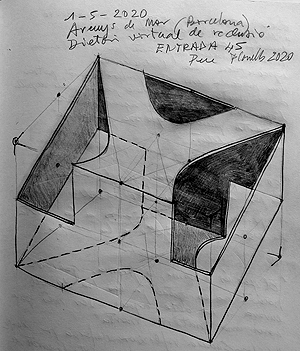 1-5-2020
Arenys de Mar (Barcelona)
Dietari virtual de reclusió
ENTRADA 45
Pere Planells 2020